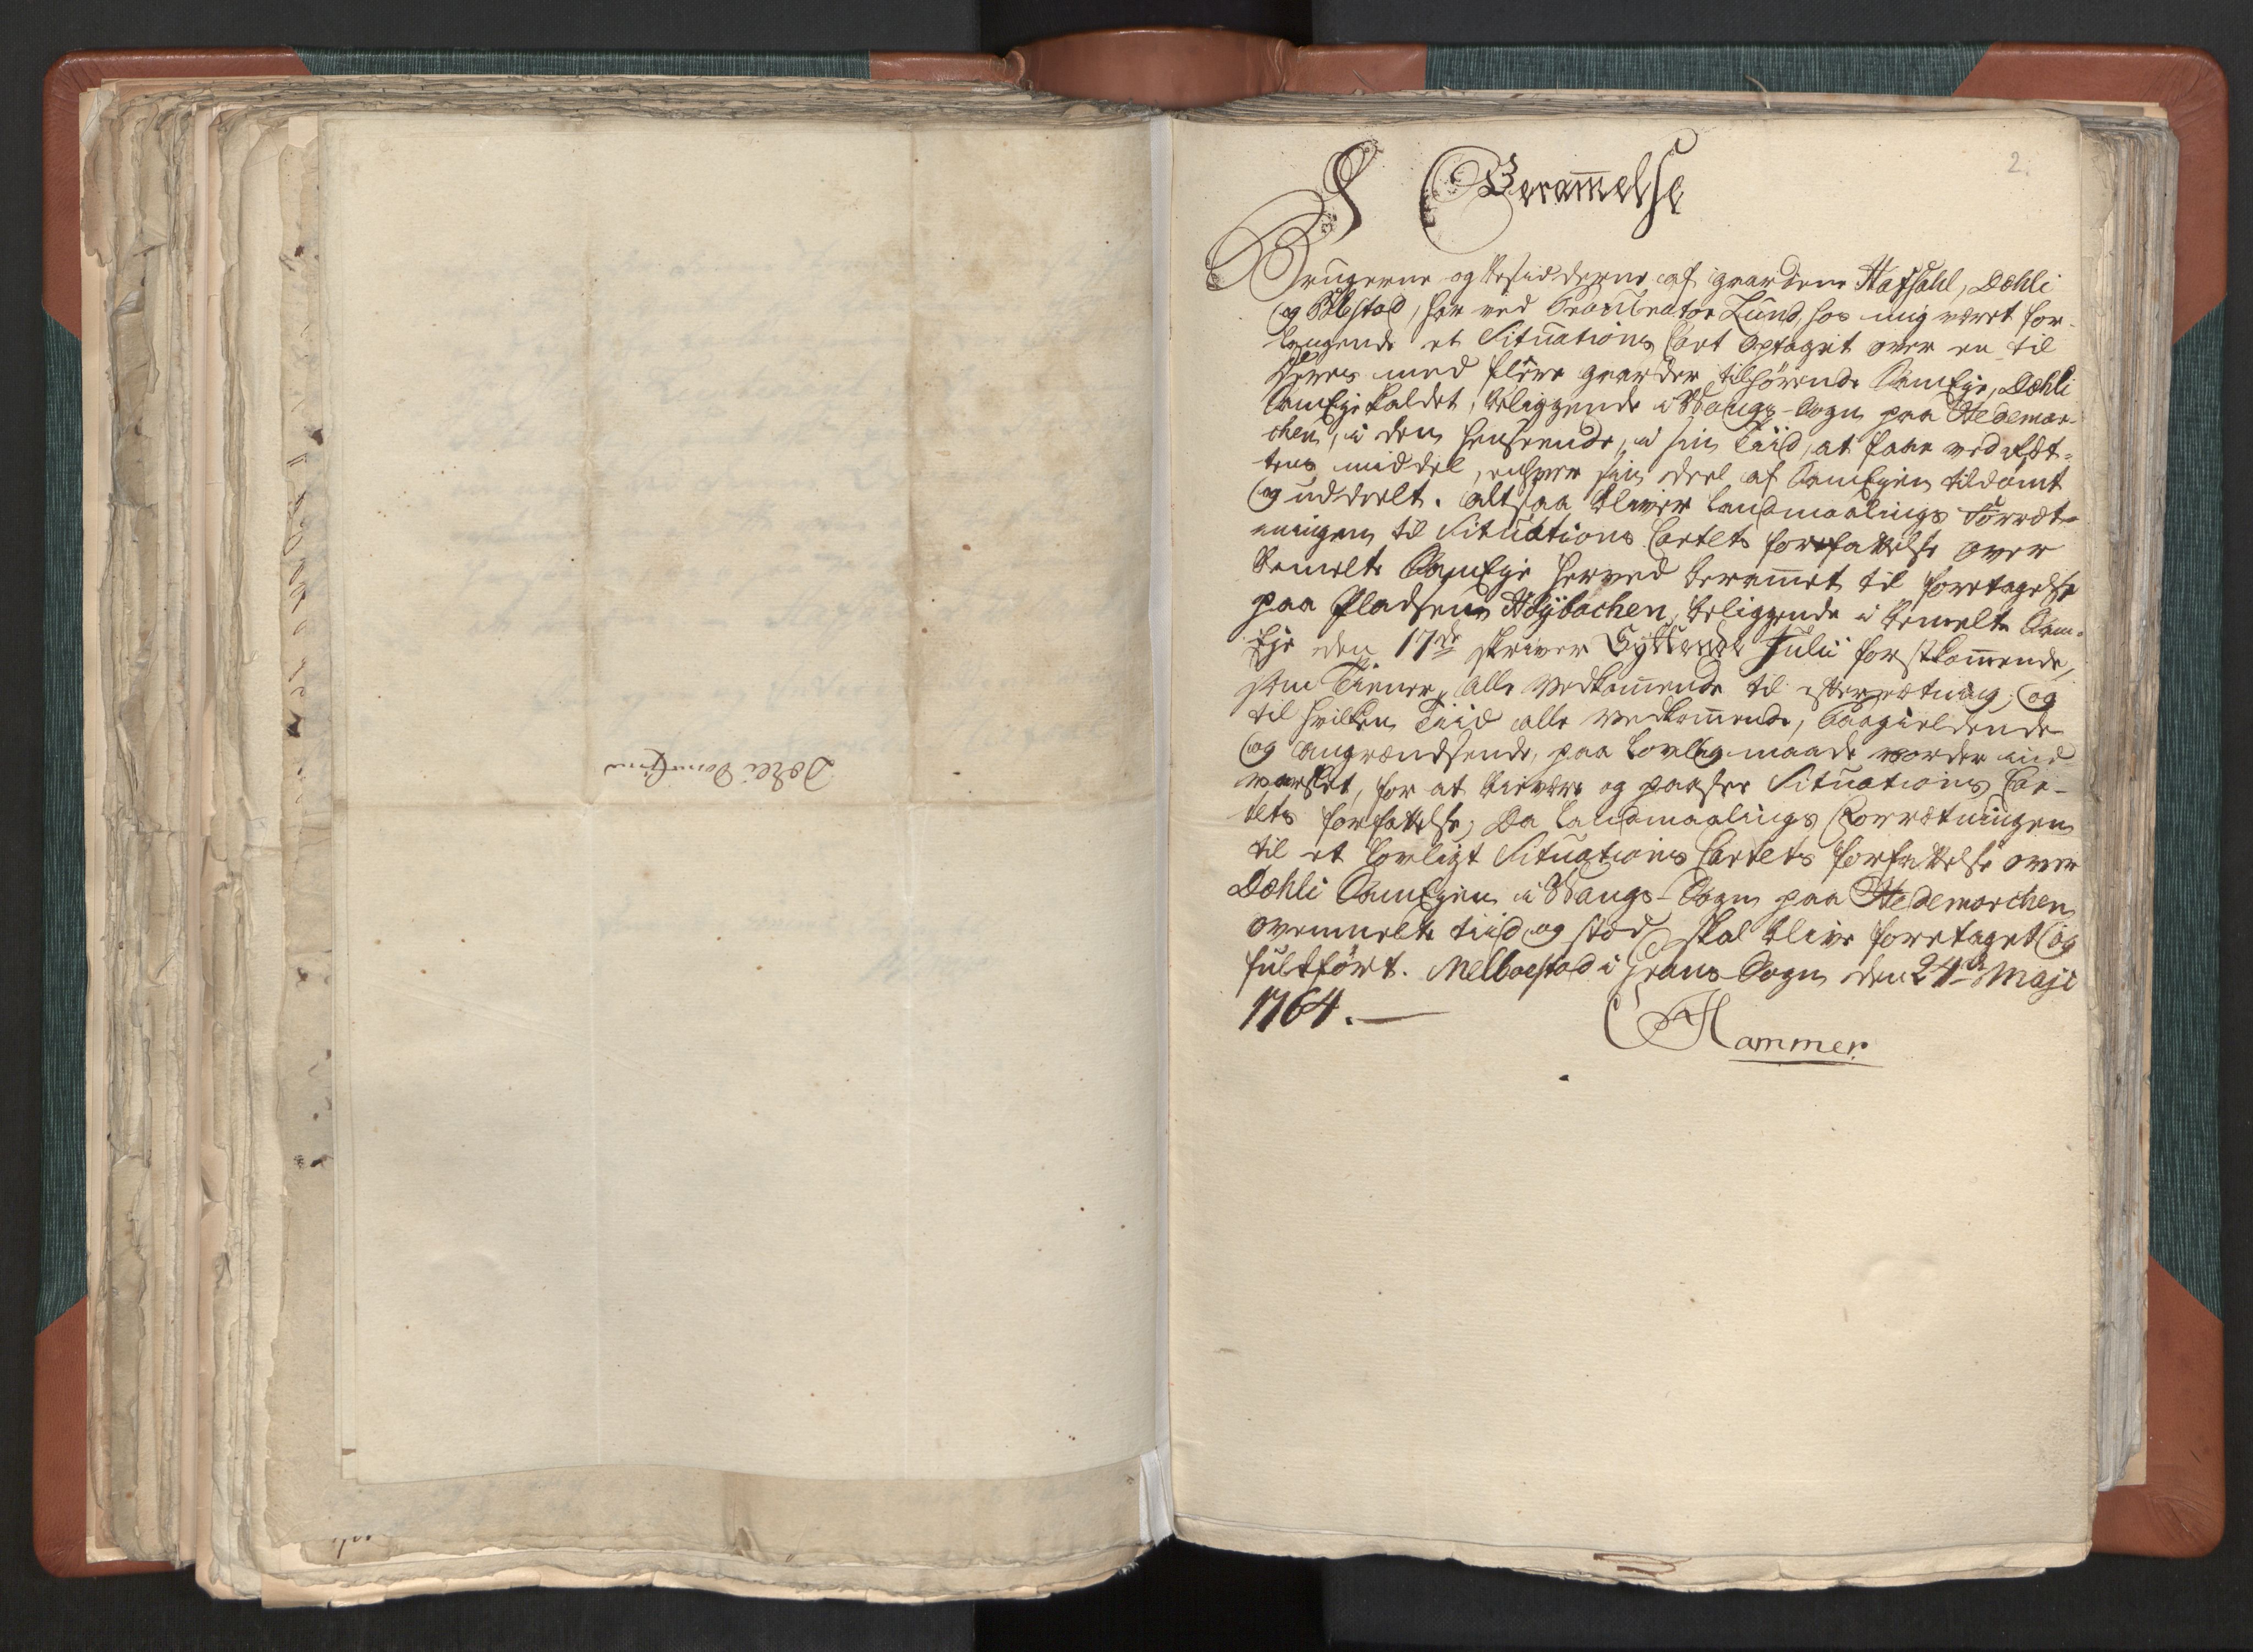 Dæhli
2.
Berammelse
Brugerne og besidderne af gaardene Hafsahl, Dæhli
og Bolstad, har ved Procurator Lund hos mig været for-
langende et Situations Cart optaget over en til
deres med flere gaarder tilhørende SamEje, Dæhli
SamEje kaldet, beliggende i Wangs-Sogn paa Hedemar-
chen, i den henseende, i sin Tiid, at faae ved Ræt-
tens middel, enhver sin deel af SamEjen tildømt
og uddeelt. altsaa bliver Landmaalings Forræt-
ningen til Situations Cartets forfattelse over
bemelte SamEje herved beram̅et til foretagelse
paa Pladsen Höybachen, beliggende i bemelte Sam-
Eje den 17de skriver Syttende Julii förstkom̅ende,
som Tiener alle Vedkom̅ende til efterretning; og
til hvilken Tiid alle Vedkom̅ende, Paagieldende
og angrændsende, paa Lovlig maade vorder ind
varslet, for at bievære og paasee Situations Car-
tets forfattelse; Da Landmaalings Forrætningen
til et Lovligt Situations Cartets forfattelse over
Dæhli SamEjen i Wangs-Sogn paa Hedemarchen
ovenmelte tiid og stæd skal blive foretaget og
fuldfört. Melboestad i Grans Sogn den 24de Maji
1764. —
CHammer